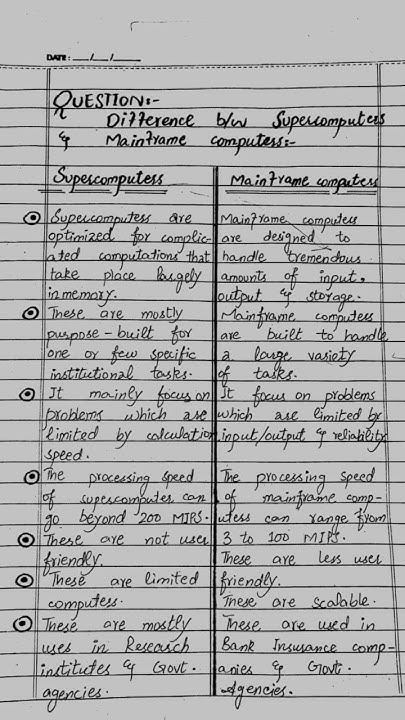 DATE: __/__/__
QUESTION:-
Difference b/w Supercomputers
& Mainframe computers:-
Supercomputers
Supercomputers are
optimized for complic-
ated computations that
take place largely
in memory.
These are mostly
purpose-built for
one or few specific
institutional tasks.
It mainly focus on
problems which are
limited by calculation
speed.
The processing speed
of supercomputer can
go beyond 200 MIRS.
These are not user
friendly.
These are limited
computers.
These are mostly
uses in Research
institutes & Govt.
agencies.
Mainframe computers
Mainframe computers
are designed to
handle tremendous
amounts of input,
output & storage.
Mainframe computers
are built to handle
a large variety
of tasks.
It focus on problems
which are limited by
input/output & reliability
The processing speed
of mainframe comp-
uters can range from
3 to 100 MIPS.
These are less user
friendly.
These are scalable.
These are used in
Bank Insurance comp-
anies & Govt.
Agencies.